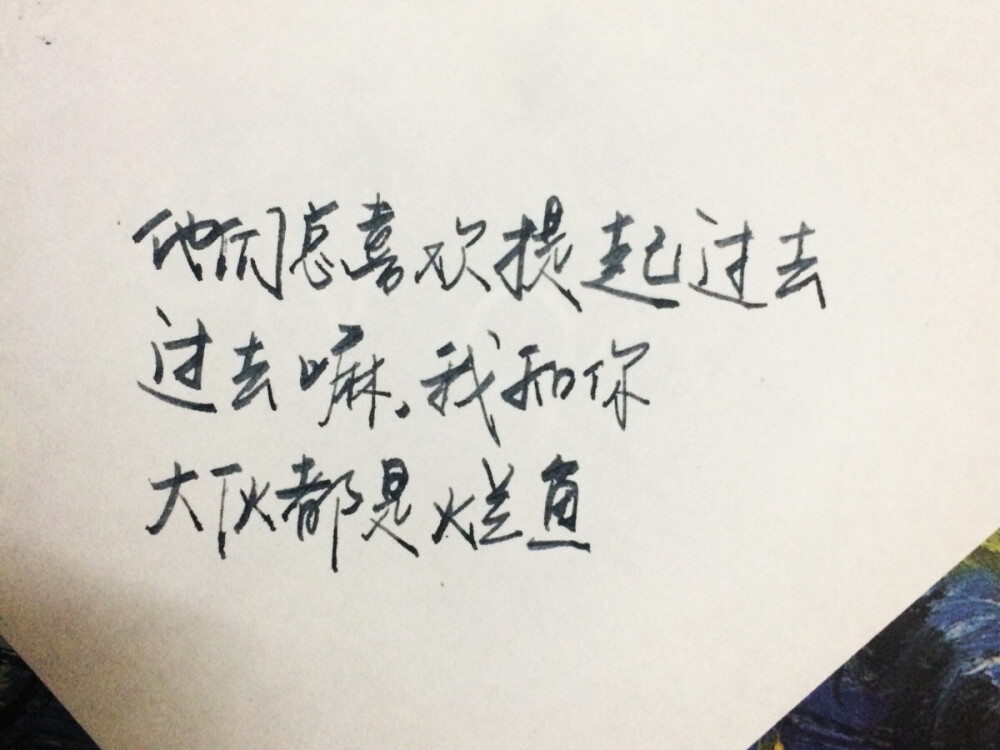 他们总喜欢提起过去
过去嘛,我和你
大伙都是烂鱼